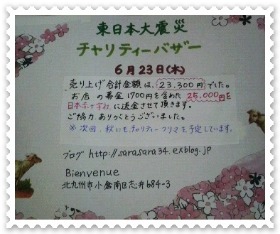 東日本大震災
チャリティーバザー
6月23日(木)
売り上げ合計金額は、23,300円でした。
お店の募金1700円を含めた25,000円を
日本赤十字社に送金させて頂きます。
ご協力ありがとうございました。
※次回、秋にもチャリティーフリマを予定しています。
ブログ http://sarasara34.exblog.jp
Bienvenue
北九州市小倉南区志井684-3